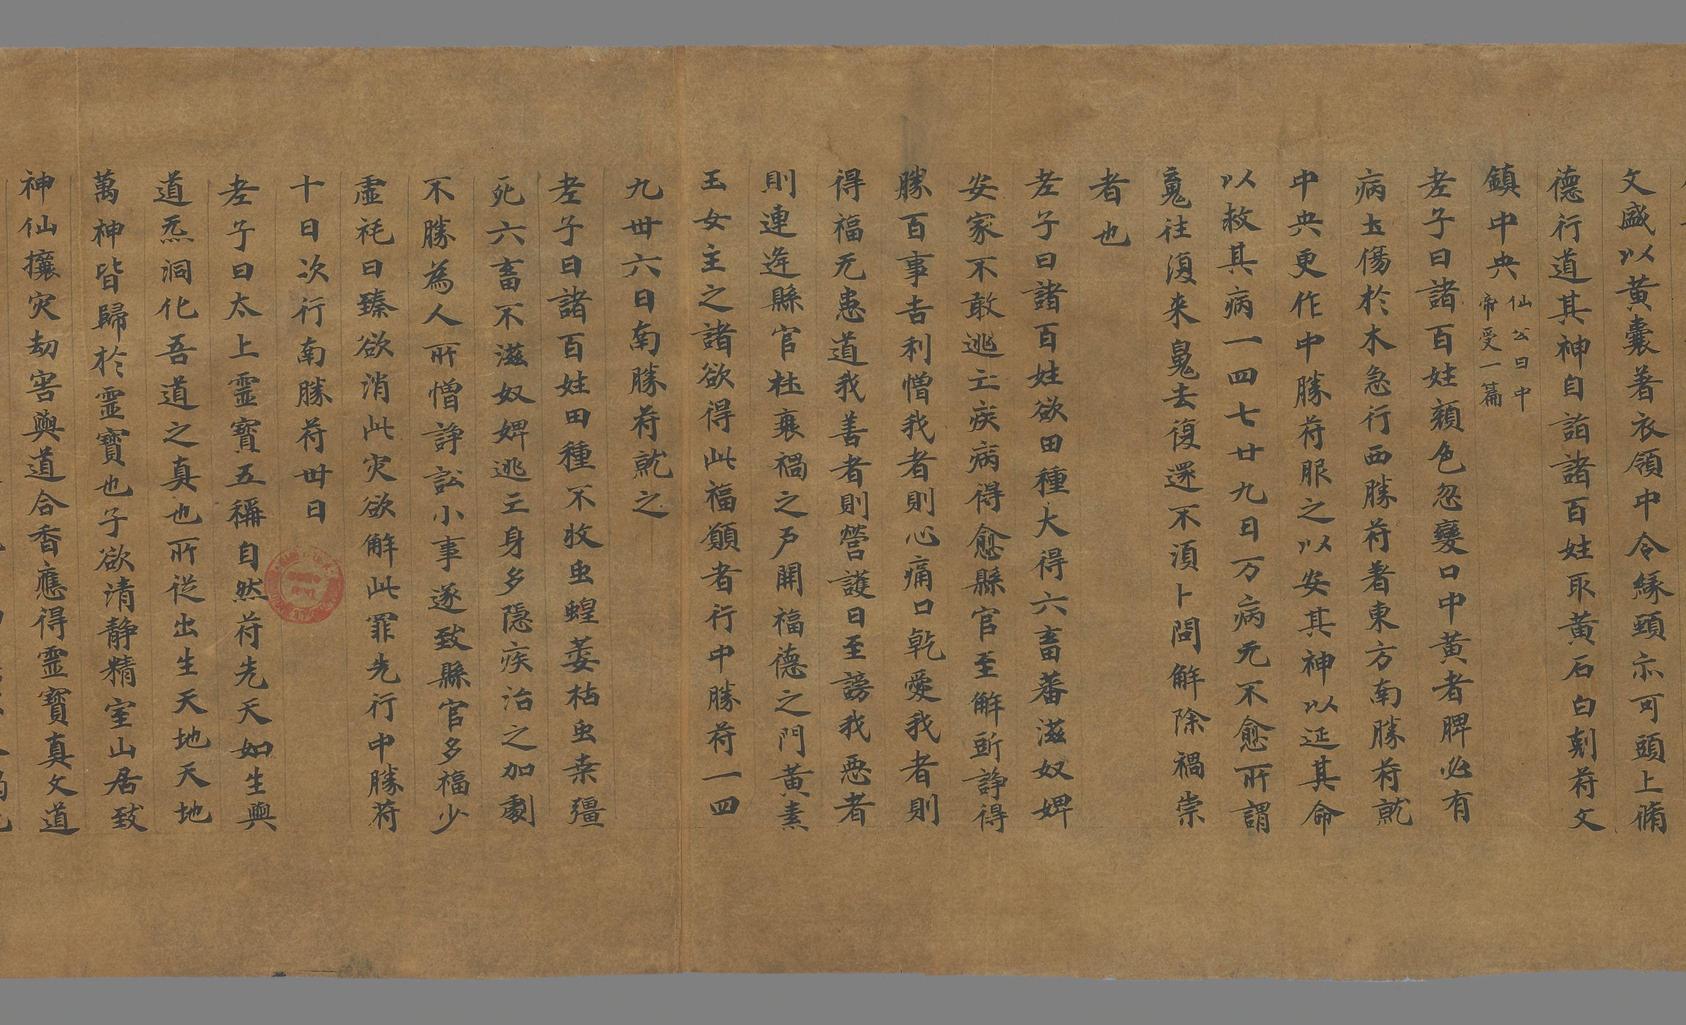 文盛以黃囊著衣領中令緣頸亦可頭上脩
德行道其神自詣諸百姓取黃石白刻苻文
鎮中央仙公曰中
帝受一篇
老子曰諸百姓顏色忽變口中黃者脾必有
病土傷於木急行西勝苻著東方南勝苻就
中央更作中勝苻服之以安其神以延其命
以救其病一四七廿九日万病无不愈所謂
䰟往復来䰟去復還不湏卜問解除禍祟
者也
老子曰諸百姓欲田種大得六畜蕃滋奴婢
安家不敢逃亡疾病得愈縣官至解斱諍得
勝百事吉利憎我者則心痛口乾愛我者則
得福无恚道我善者則營護日至謗我惡者
則連逄縣官杜襄禍之戶開福德之門黃素
玉女主之諸欲得此福願者行中勝苻一四
九丗六日南勝苻就之
老子曰諸百姓田種不收虫蝗萎枯虫桒彊
死六畜不滋奴婢逃亡身多隱疾治之加劇
不勝為人所憎諍訟小事遂致縣官多福少
虛秏日臻欲消此灾欲解此罪先行中勝苻
十日次行南勝苻丗日
老子曰太上靈寶五稱自然苻先天如生與
道炁洞化吾道之真也所從出生天地天地
萬神皆歸於靈寶也子欲清靜精室山居致
神仙攘灾劫害與道合香應得靈寶真文道